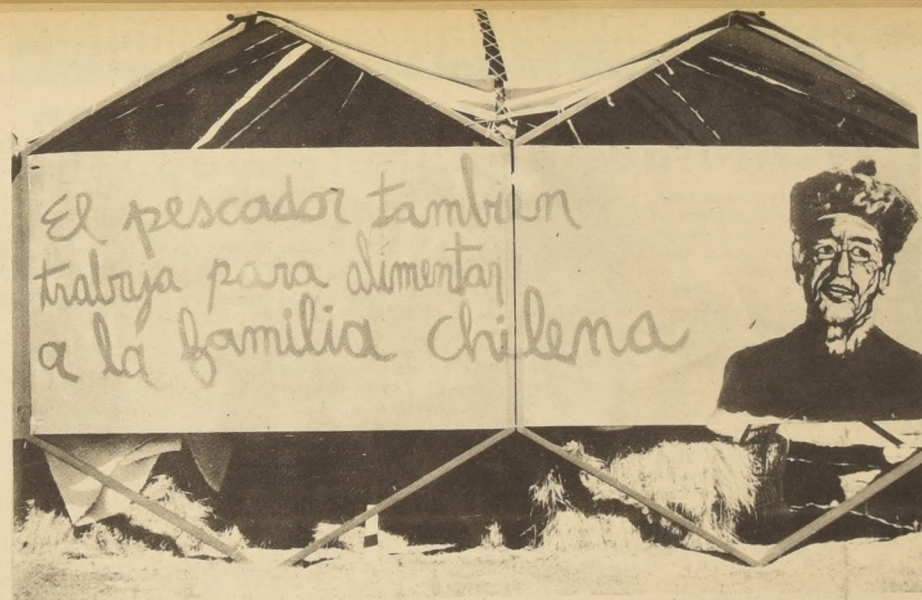 El pescador tambien
trabaja para alimentar
a la familia chilena